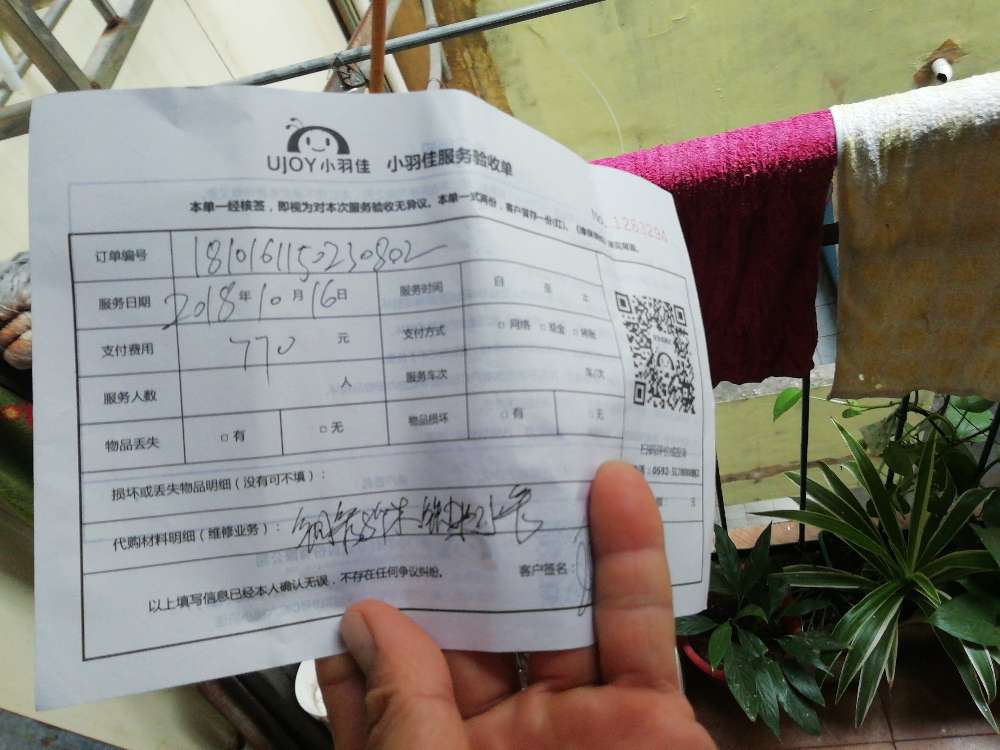 UJOY小羽佳 小羽佳服务验收单
本单一经核签，即视为对本次服务验收无异议。本单一式两份，客户留存一份(红)、
No. 1263294
订单编号 1810161150230802
服务日期 2018年10月16日 服务时间 自 至 止
支付费用 770 元 支付方式 □ 网络 □ 现金 □ 转账
服务人数 人 服务车次 车/次
物品丢失 □ 有 □ 无 物品损坏 □ 有 □ 无
扫码评价或投诉
损坏或丢失物品明细（没有可不填）： 元
代购材料明细（维修业务）：
以上填写信息已经本人确认无误，不存在任何争议纠纷。 客户签名：